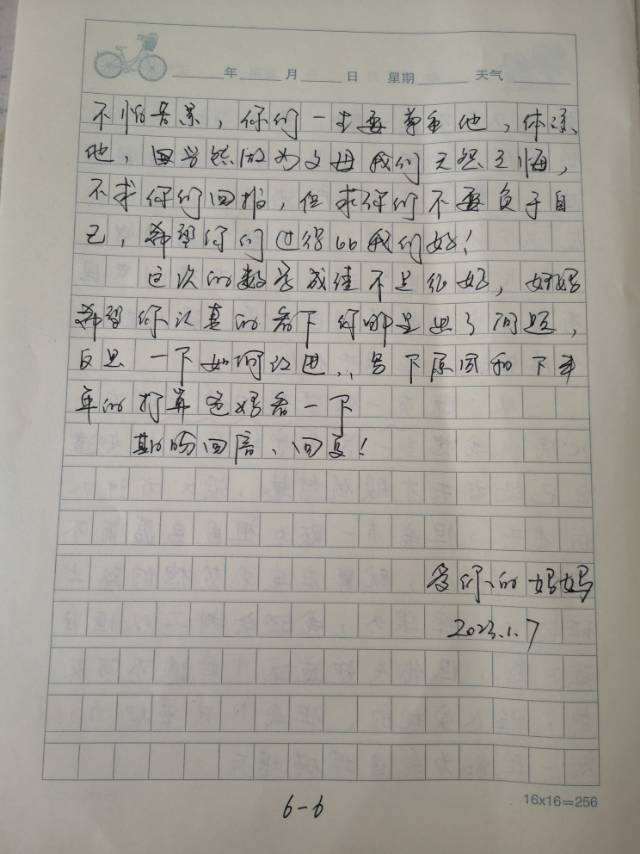 年 月 日 星期 天气
不怕苦累，你们一定要尊重他，体谅
他，虽然做为父母我们无怨无悔，
不求你们回报，但求你们不要负于自
己，希望你们过得比我们好！
这次的数学成绩不是很好，妈妈
希望你认真的看下你哪是出了问题，
反思一下如何改进，写下原因和下半
年的打算爸妈看一下
期盼回音、回复！
爱你的妈妈
2023.1.7
6-6
16x16=256